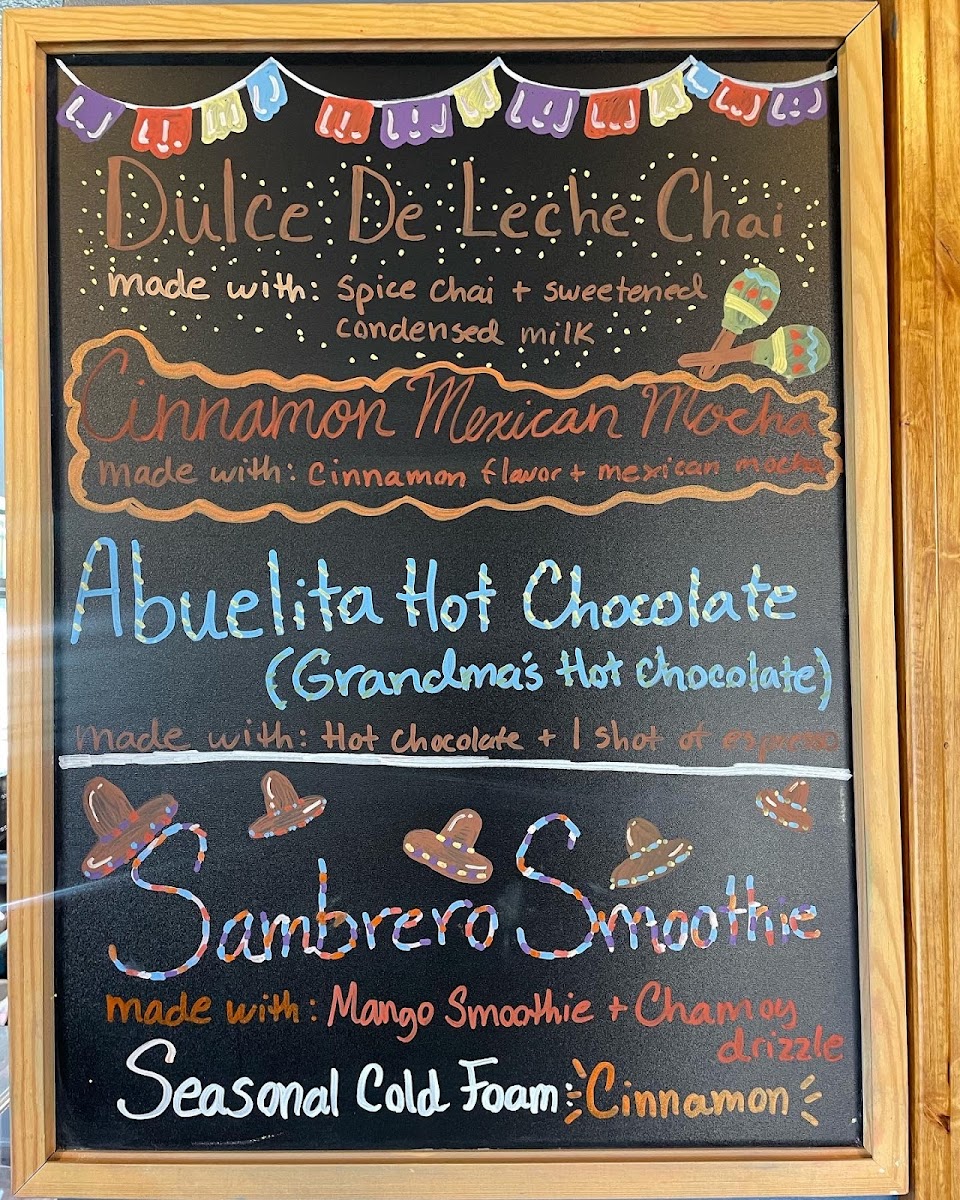 Dulce De Leche Chai
made with: Spice chai + sweetened
condensed milk
Cinnamon Mexican Mocha
made with: cinnamon flavor + mexican mocha
Abuelita Hot Chocolate
(Grandma's Hot chocolate)
made with: Hot chocolate + 1 shot of espresso
Sambrero Smoothie
made with: Mango Smoothie + Chamoy
drizzle
Seasonal Cold Foam Cinnamon